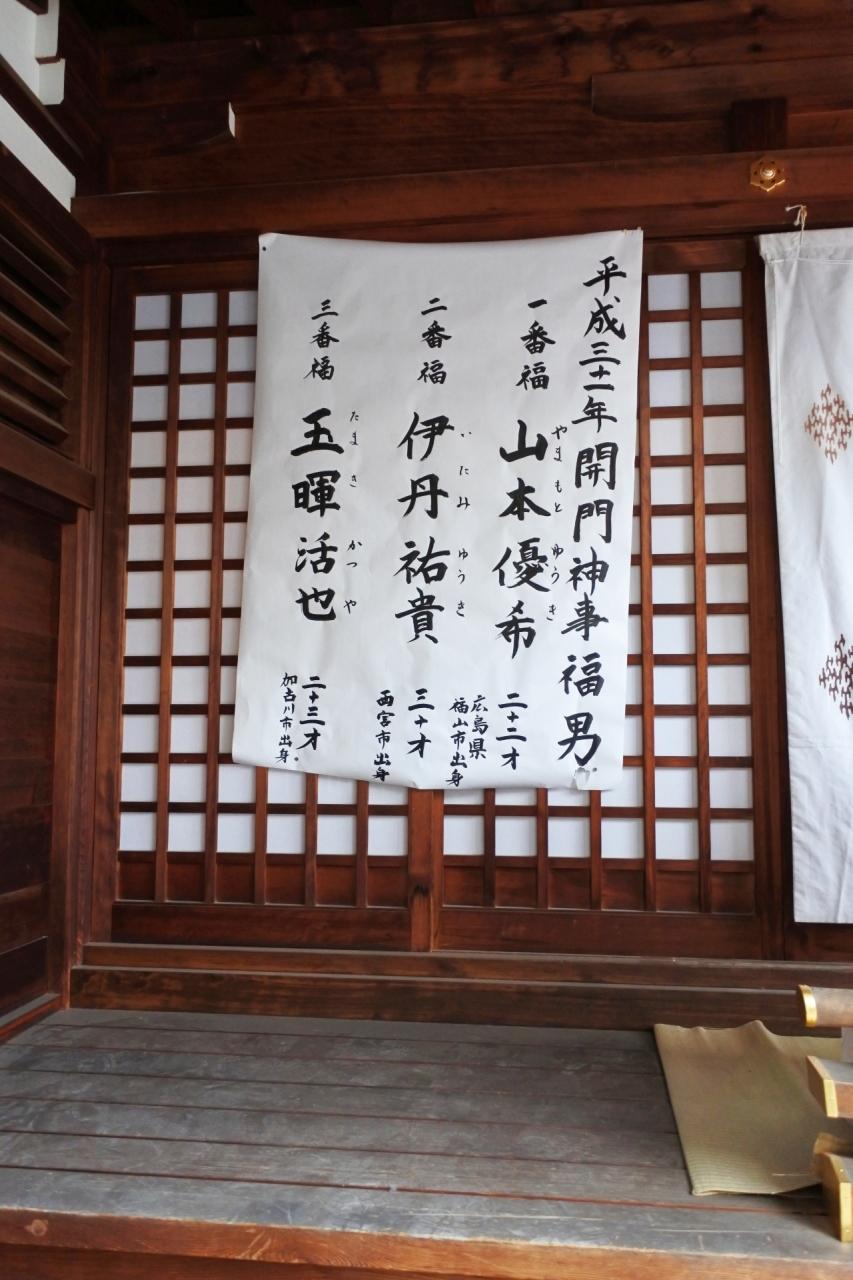 平成三十一年開門神事福男
一番福
山本優希
やまもとゆうき
二十二才
広島県
福山市出身
二番福
伊丹祐貴
いたみゆうき
三十才
西宮市出身
三番福
玉暉活也
たまきかつや
二十三才
加古川市出身